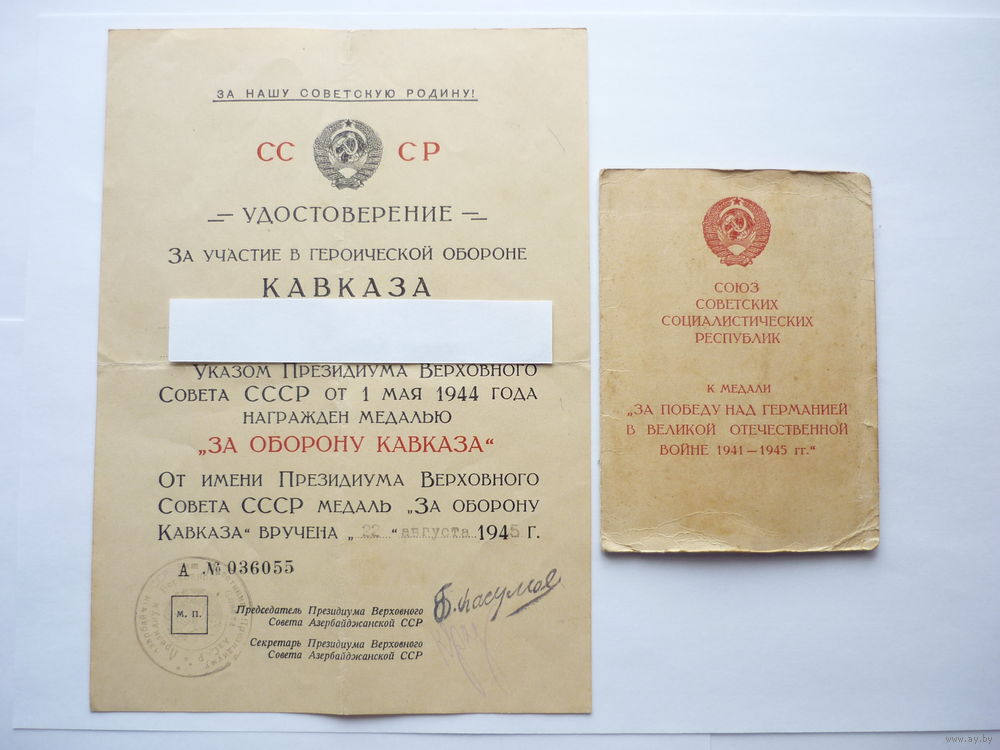 ЗА НАШУ СОВЕТСКУЮ РОДИНУ!
СС СР
УДОСТОВЕРЕНИЕ
ЗА УЧАСТИЕ В ГЕРОИЧЕСКОЙ ОБОРОНЕ
КАВКАЗА
УКАЗОМ ПРЕЗИДИУМА ВЕРХОВНОГО
СОВЕТА СССР ОТ 1 МАЯ 1944 ГОДА
НАГРАЖДЕН МЕДАЛЬЮ
„ЗА ОБОРОНУ КАВКАЗА“
ОТ ИМЕНИ ПРЕЗИДИУМА ВЕРХОВНОГО
СОВЕТА СССР МЕДАЛЬ „ЗА ОБОРОНУ
КАВКАЗА“ ВРУЧЕНА „22“ августа 1945 Г.
А № 036055
М. П.
Председатель Президиума Верховного
Совета Азербайджанской ССР
Секретарь Президиума Верховного
Совета Азербайджанской ССР
СОЮЗ
СОВЕТСКИХ
СОЦИАЛИСТИЧЕСКИХ
РЕСПУБЛИК
К МЕДАЛИ
„ЗА ПОБЕДУ НАД ГЕРМАНИЕЙ
В ВЕЛИКОЙ ОТЕЧЕСТВЕННОЙ
ВОЙНЕ 1941—1945 гг.“
www.ay.by